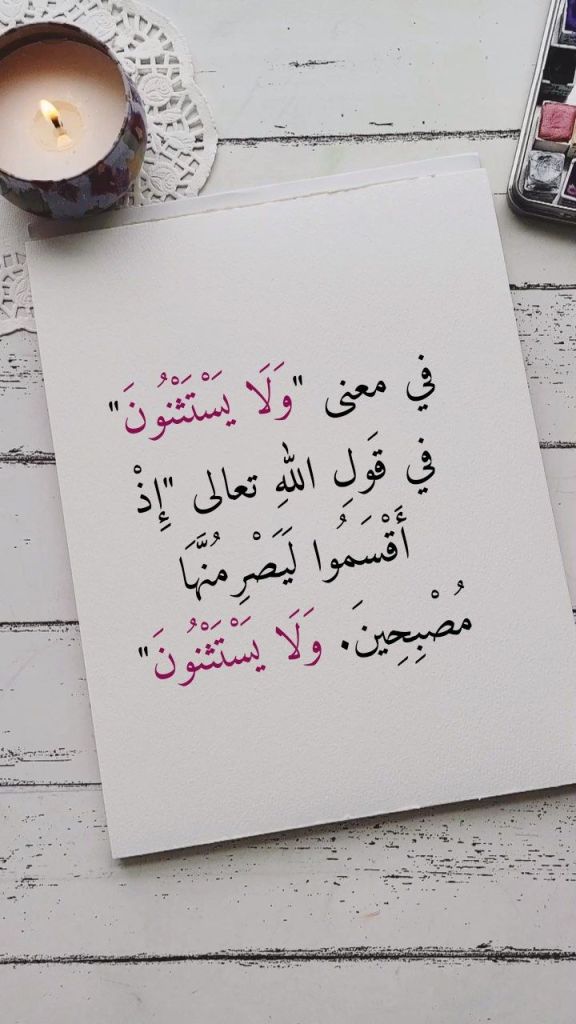 في معنى "وَلَا يَسْتَثْنُونَ"
في قَولِ اللهِ تعالى "إِذْ
أَقْسَمُوا لَيَصْرِمُنَّهَا
مُصْبِحِينَ. وَلَا يَسْتَثْنُونَ"